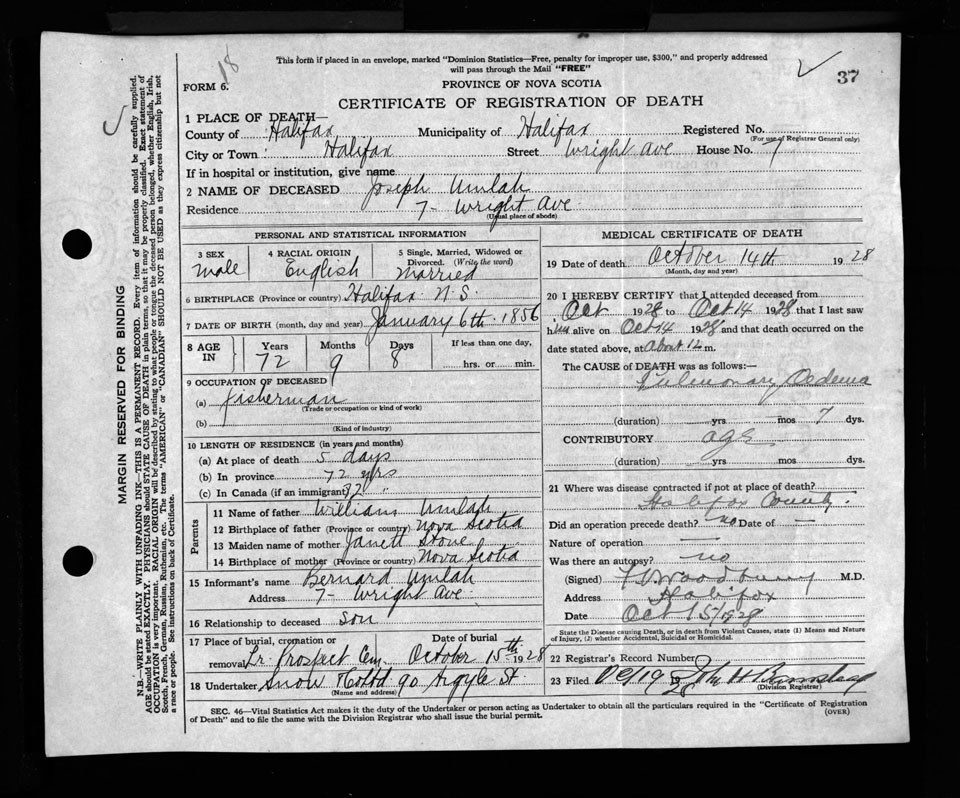 This form if placed in an envelope, marked "Dominion Statistics—Free, penalty for improper use, $300," and properly addressed
will pass through the Mail "FREE"
18
37
FORM 6.
PROVINCE OF NOVA SCOTIA
CERTIFICATE OF REGISTRATION OF DEATH
1 PLACE OF DEATH—
County of Halifax Municipality of Halifax Registered No.
(For use of Registrar General only)
City or Town Halifax Street Wright Ave House No. 7
If in hospital or institution, give name
2 NAME OF DECEASED Joseph Umlah
Residence 7- Wright Ave
(Usual place of abode)
PERSONAL AND STATISTICAL INFORMATION
3 SEX male
4 RACIAL ORIGIN English
5 Single, Married, Widowed or Divorced. (Write the word) married
6 BIRTHPLACE (Province or country) Halifax N.S.
7 DATE OF BIRTH (month, day and year) January 6th 1856
8 AGE IN Years 72 Months 9 Days 8 If less than one day, hrs. or min.
9 OCCUPATION OF DECEASED
(a) fisherman
(Trade or occupation or kind of work)
(b)
(Kind of industry)
10 LENGTH OF RESIDENCE (in years and months)
(a) At place of death 5 days
(b) In province 72 yrs
(c) In Canada (if an immigrant) 72 "
Parents
11 Name of father William Umlah
12 Birthplace of father (Province or country) Nova Scotia
13 Maiden name of mother Janett Stone
14 Birthplace of mother (Province or country) Nova Scotia
15 Informant's name Bernard Umlah
Address 7- Wright Ave
16 Relationship to deceased son
17 Place of burial, cremation or removal Lr. Prospect Cem. Date of burial October 15th 1928
18 Undertaker Snow & Co Ltd 90 Argyle St.
(Name and address)
MEDICAL CERTIFICATE OF DEATH
19 Date of death October 14th 1928
(Month, day and year)
20 I HEREBY CERTIFY that I attended deceased from
Oct 1928 to Oct 14 1928 that I last saw
him alive on Oct 14 1928 and that death occurred on the
date stated above, at about 12 m.
The CAUSE of DEATH was as follows:—
Pulmonary Oedema
(duration) yrs mos 7 dys.
CONTRIBUTORY age
(duration) yrs mos dys.
21 Where was disease contracted if not at place of death?
Halifax County.
Did an operation precede death? no Date of —
Nature of operation —
Was there an autopsy? no
(Signed) Woodbury M.D.
Address Halifax
Date Oct 15/1928
State the Disease causing Death, or in death from Violent Causes, state (1) Means and Nature
of Injury, (2) whether Accidental, Suicidal or Homicidal.
22 Registrar's Record Number
23 Filed
(Division Registrar)
SEC. 46—Vital Statistics Act makes it the duty of the Undertaker or person acting as Undertaker to obtain all the particulars required in the "Certificate of Registration
of Death" and to file the same with the Division Registrar who shall issue the burial permit. (OVER)
MARGIN RESERVED FOR BINDING
N.B.—WRITE PLAINLY WITH UNFADING INK—THIS IS A PERMANENT RECORD. Every item of information should be carefully supplied.
AGE should be stated EXACTLY. PHYSICIANS should STATE CAUSE OF DEATH in plain terms, so that it may be properly classified. Exact statement of
OCCUPATION is very important. RACIAL ORIGIN will be described by stating to what people or tongue the deceased person belonged, whether English, Irish,
Scotch, French, German, Russian, Ruthenian, etc. The terms "AMERICAN" or "CANADIAN" SHOULD NOT BE USED as they express citizenship but not
a race or people. See instructions on back of Certificate.